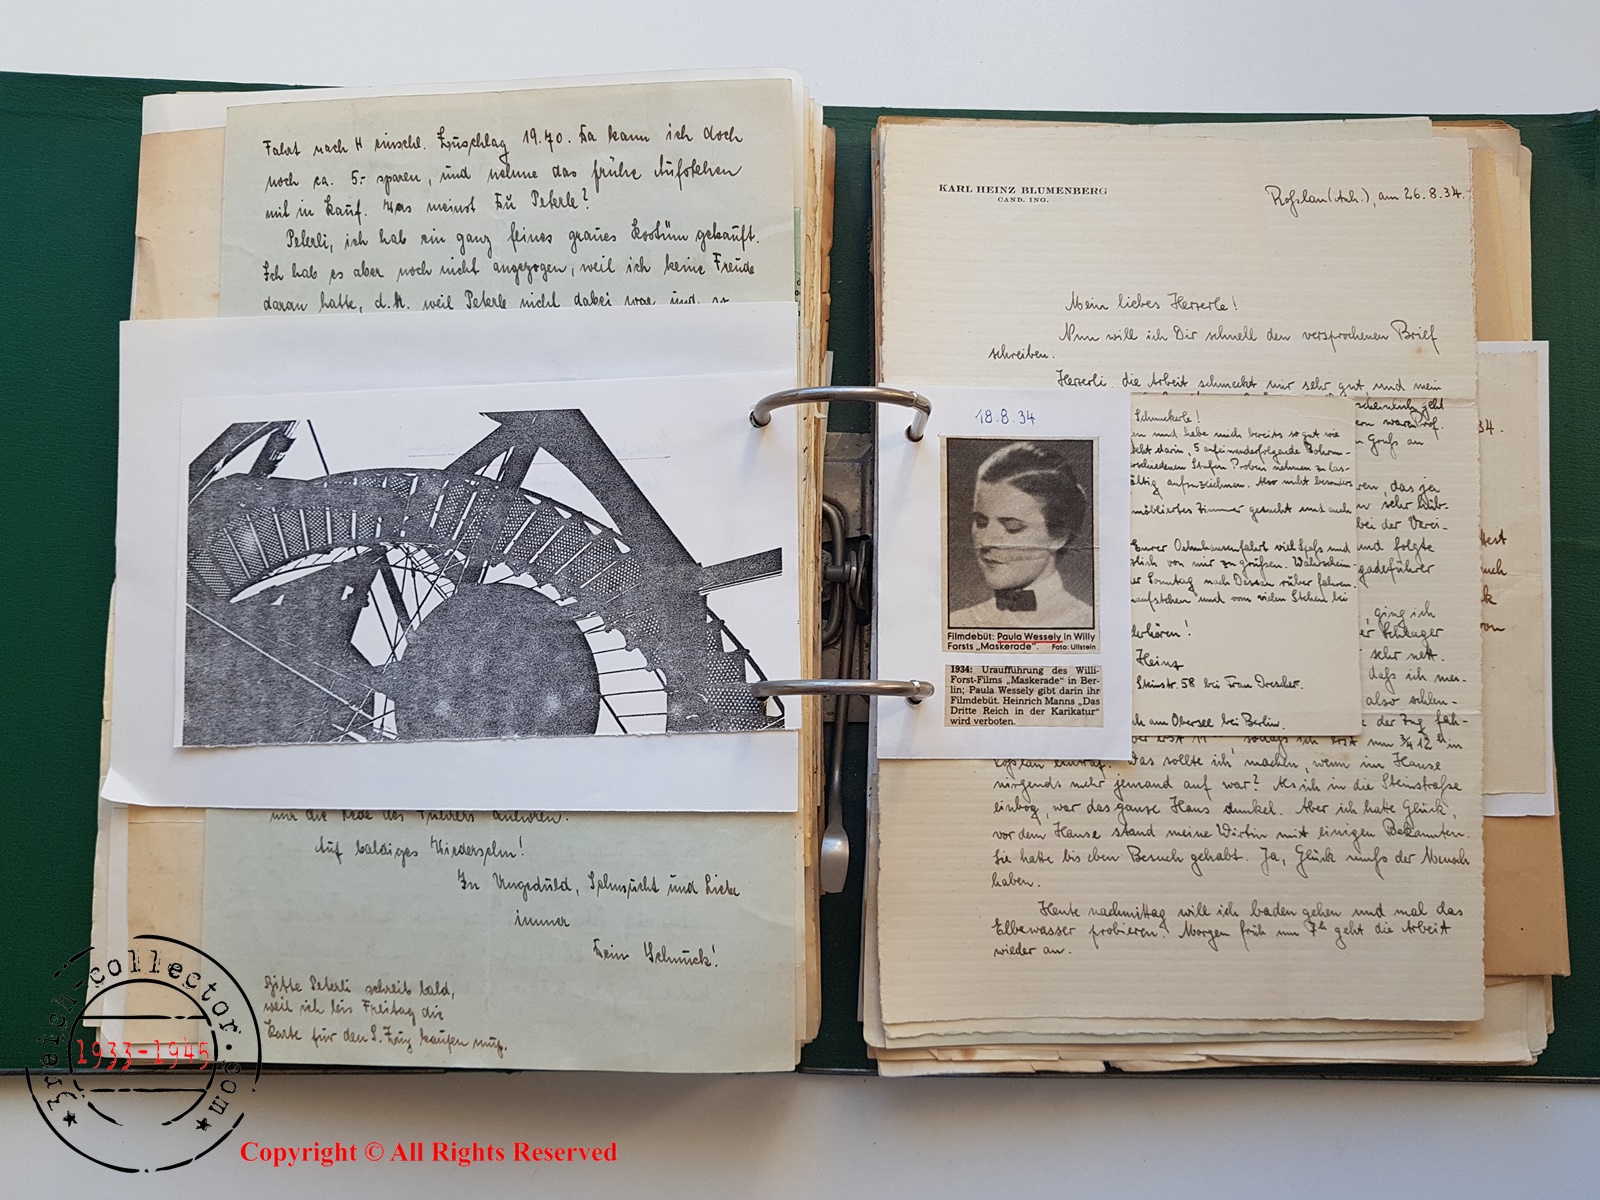 Fahrt nach H einschl. Zuschlag 19.70. Da kann ich doch
noch ca. 5.- sparen, und nehme das frühe Aufstehen
mit in Kauf. Was meinst Du Peterle?
Peterli, ich hab ein ganz feines graues Kostüm gekauft.
Ich hab es aber noch nicht angezogen, weil ich keine Freude
daran hatte, d.h. weil Peterle nicht dabei war und so
und die Rede des Führers anhören.
Auf baldiges Wiedersehn!
In Ungeduld, Sehnsucht und Liebe
immer
Dein Schmuck!
Bitte Peterli schreib bald,
weil ich bis Freitag die
Karte für den S. Zug kaufen muß.
KARL HEINZ BLUMENBERG
CAND. ING.
Roßlau (Anh.), am 26.8.34.
Mein liebes Herzerle!
Nun will ich Dir schnell den versprochenen Brief
schreiben.
Herzerli, die Arbeit schmeckt mir sehr gut und mein
18.8.34
Filmdebüt: Paula Wessely in Willy
Forsts „Maskerade". Foto: Ullstein
1934: Uraufführung des Willi-
Forst-Films „Maskerade" in Ber-
lin; Paula Wessely gibt darin ihr
Filmdebüt. Heinrich Manns „Das
Dritte Reich in der Karikatur"
wird verboten.
Schmuckerle!
und habe mich bereits so gut wie
darin, 5 aufeinanderfolgende Bohrun-
Stufen Proben nehmen zu las-
aufzuzeichnen. Also nicht besonders
möbliertes Zimmer gesucht und auch
Eurer Oeynhausenfahrt viel Spaß und
von mir zu grüßen. Wahrschein-
Sonntag nach Dessau rüber fahren.
aufstehen und vom vielen Stehen bei
Heinz
Steinstr. 58 bei Frau Drescher.
am Obersee bei Berlin.
scheinlich geht
Gruß an
das ja
bei der Verei-
und folgte
ging ich
der Schlager
sehr nett.
daß ich mei-
also schleu-
der Zug fäh-
erst 11 sodaß ich erst um ¾ 12 h in
Roßlau eintraf. Was sollte ich machen, wenn im Hause
nirgends mehr jemand auf war? Als ich in die Steinstraße
einbog, war das ganze Haus dunkel. Aber ich hatte Glück,
vor dem Hause stand meine Wirtin mit einigen Bekannten.
Sie hatte bis eben Besuch gehabt. Ja, Glück muß der Mensch
haben.
Heute nachmittag will ich baden gehen und mal das
Elbewasser probieren. Morgen früh um 7h geht die Arbeit
wieder an.
34.
3reich-collector.com
1933-1945
Copyright © All Rights Reserved